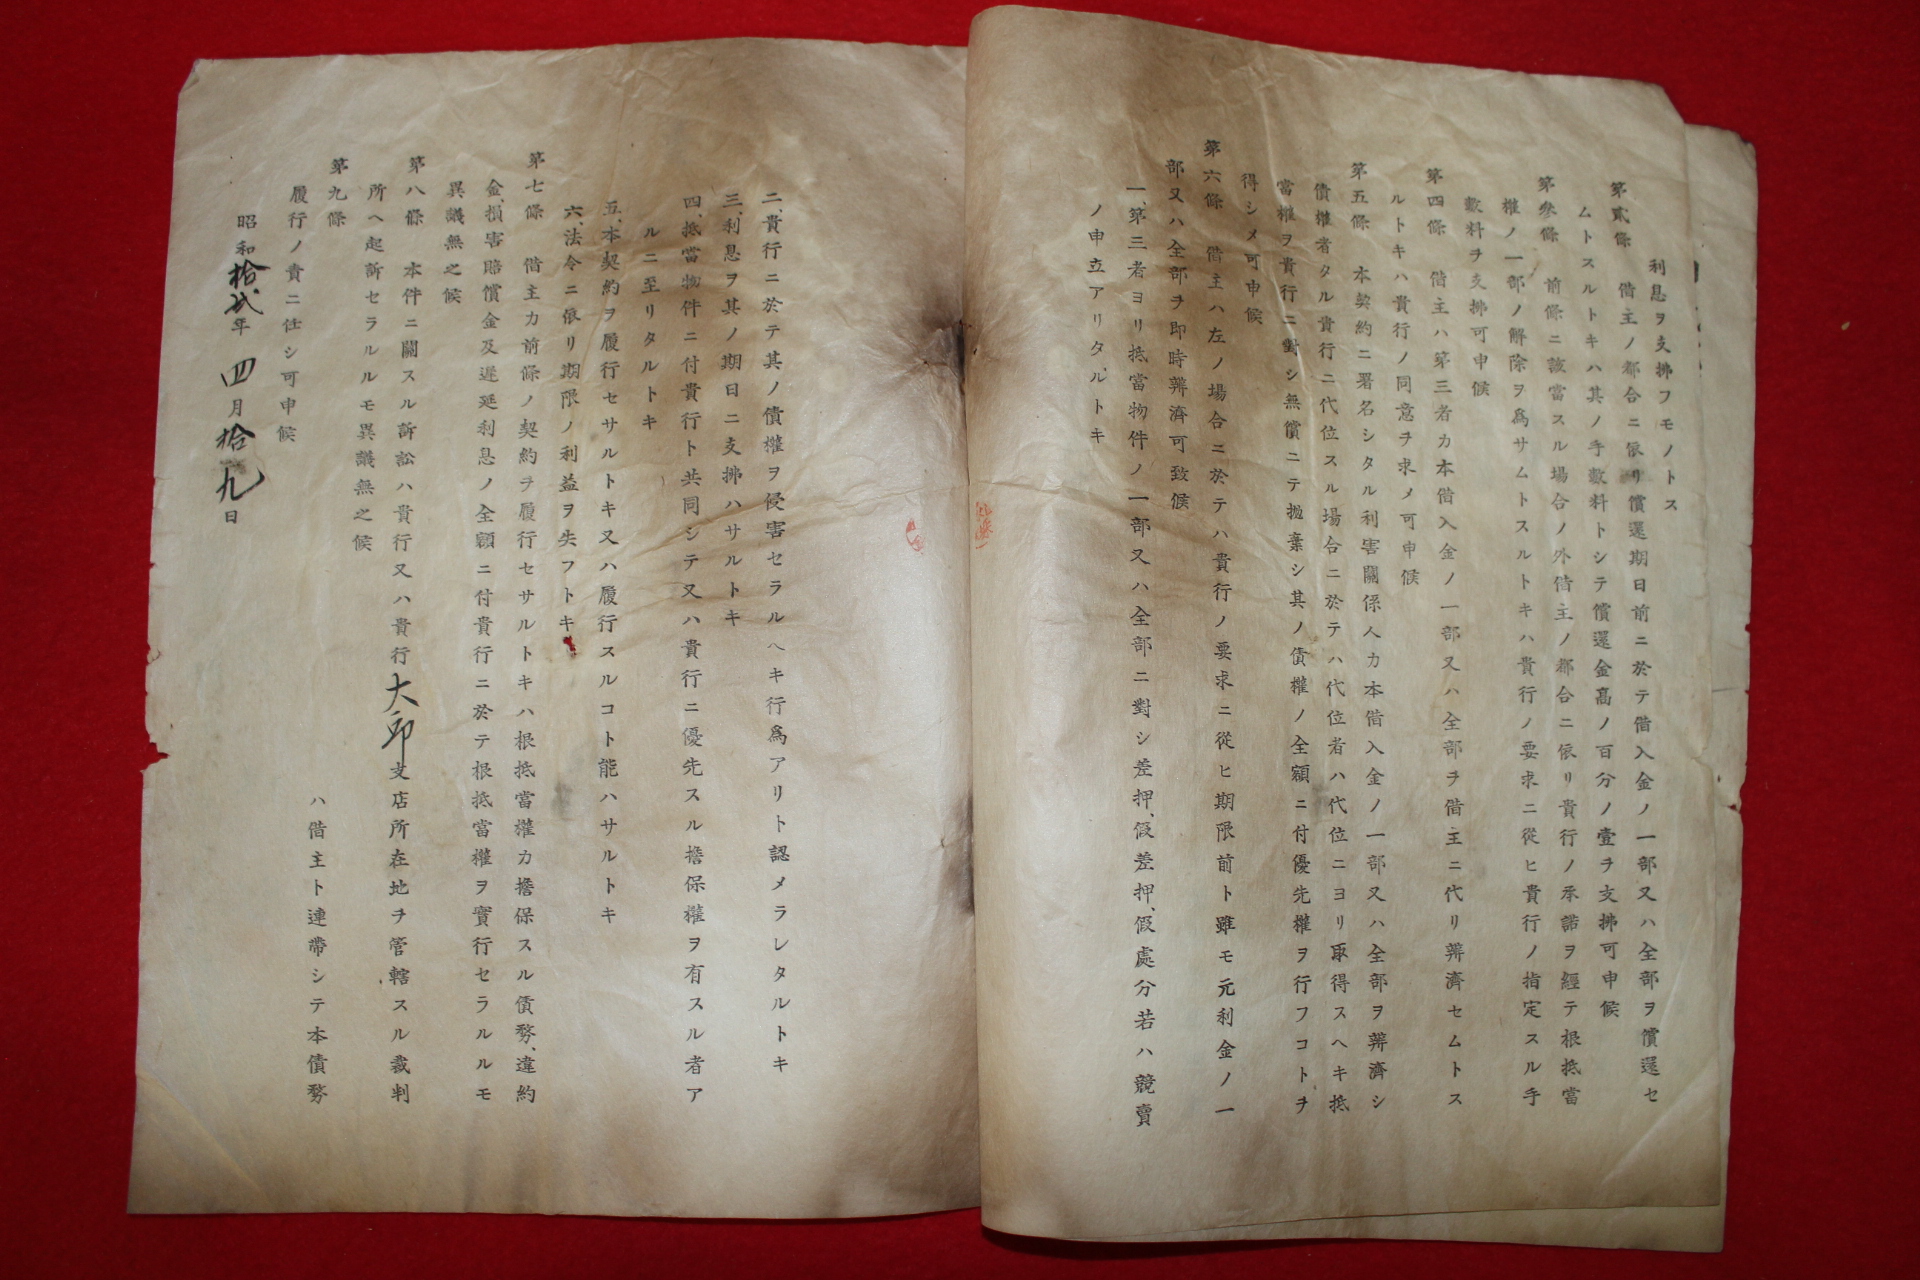 利息ヲ支拂フモノトス
第貳條　借主ノ都合ニ依リ償還期日前ニ於テ借入金ノ一部又ハ全部ヲ償還セ
ムトスルトキハ其ノ手數料トシテ償還金高ノ百分ノ壹ヲ支拂可申候
第參條　前條ニ該當スル場合ノ外借主ノ都合ニ依リ貴行ノ承諾ヲ經テ根抵當
權ノ一部ノ解除ヲ爲サムトスルトキハ貴行ノ要求ニ從ヒ貴行ノ指定スル手
數料ヲ支拂可申候
第四條　借主ハ第三者カ本借入金ノ一部又ハ全部ヲ借主ニ代リ辨濟セムトス
ルトキハ貴行ノ同意ヲ求メ可申候
第五條　本契約ニ署名シタル利害關係人カ本借入金ノ一部又ハ全部ヲ辨濟シ
債權者タル貴行ニ代位スル場合ニ於テハ代位者ハ代位ニヨリ取得スヘキ抵
當權ヲ貴行ニ對シ無償ニテ拋棄シ其ノ債權ノ全額ニ付優先權ヲ行フコトヲ
得シメ可申候
第六條　借主ハ左ノ場合ニ於テハ貴行ノ要求ニ從ヒ期限前ト雖モ元利金ノ一
部又ハ全部ヲ即時辨濟可致候
一、第三者ヨリ抵當物件ノ一部又ハ全部ニ對シ差押、假差押、假處分若ハ競賣
ノ申立アリタルトキ
二、貴行ニ於テ其ノ債權ヲ侵害セラルヘキ行爲アリト認メラレタルトキ
三、利息ヲ其ノ期日ニ支拂ハサルトキ
四、抵當物件ニ付貴行ト共同シテ又ハ貴行ニ優先スル擔保權ヲ有スル者ア
ルニ至リタルトキ
五、本契約ヲ履行セサルトキ又ハ履行スルコト能ハサルトキ
六、法令ニ依リ期限ノ利益ヲ失フトキ
第七條　借主カ前條ノ契約ヲ履行セサルトキハ根抵當權カ擔保スル債務、違約
金、損害賠償金及遲延利息ノ全額ニ付貴行ニ於テ根抵當權ヲ實行セラルルモ
異議無之候
第八條　本件ニ關スル訴訟ハ貴行又ハ貴行大邱支店所在地ヲ管轄スル裁判
所ヘ起訴セラルルモ異議無之候
第九條　ハ借主ト連帶シテ本債務
履行ノ責ニ任シ可申候
昭和拾貳年四月拾九日